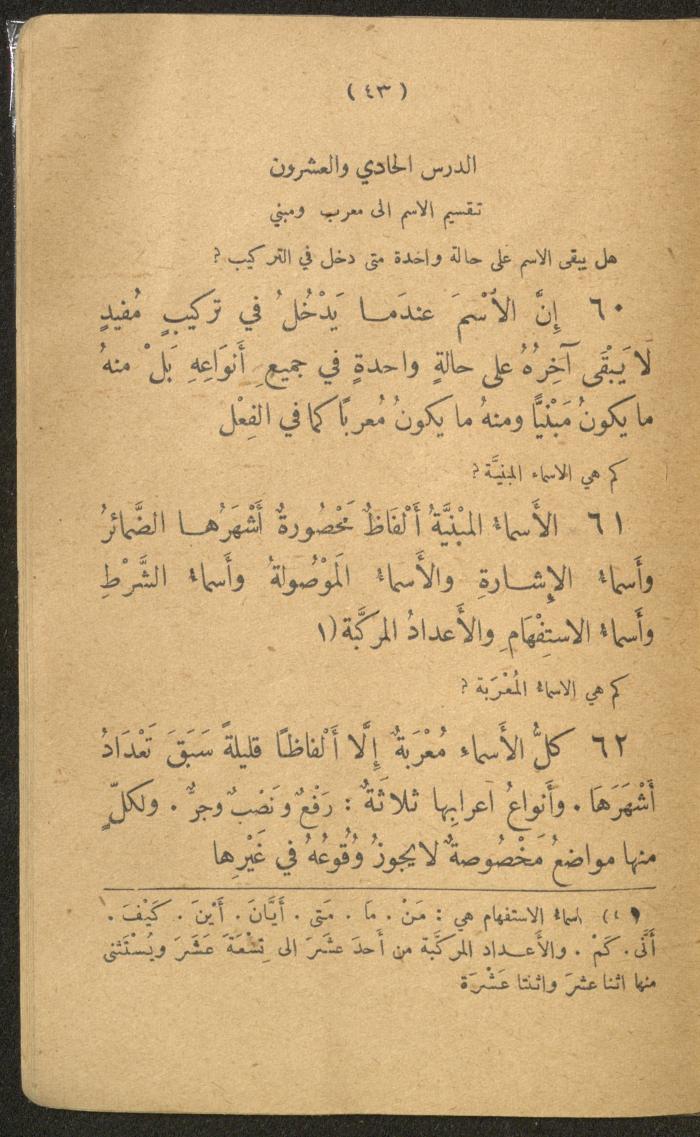 ( ٤٣ )
الدرس الحادي والعشرون
تقسيم الاسم الى معرب ومبني
هل يبقى الاسم على حالة واحدة متى دخل في التركيب ؟
٦٠ إِنَّ الاُسْمَ عندَمــا يَدْخُلُ في تركيبٍ مُفيدٍ
لَا يَبْقَى آخِرُهُ على حالةٍ واحدةٍ في جميعِ أَنوَاعِهِ بَلْ منهُ
ما يكونُ مَبْنِيًّا ومنهُ ما يكونُ مُعربًا كما في الفِعْل
كم هي الاسماء المبنيَّة ؟
٦١ الأَسماءُ المبْنِيَّةُ أَلْفَاظٌ مَحْصُورةٌ أَشْهَرُهــا الضَّمائرُ
وأَسماءُ الإِشــارةِ والأَسماءُ المَوْصُولةُ وأَسماءُ الشَّرْطِ
وأَسماءُ الاستِفْهَامِ والأَعدادُ المركَّبة (١
كم هي الاسماءُ المُعْرَبة ؟
٦٢ كلُّ الأَسماء مُعْرَبةٌ إِلَّا أَلْفاظًا قليلةً سَبَقَ تَعْدَادُ
أَشْهَرَهَا . وأَنواعُ اعرابِها ثلاثَةٌ : رَفْعٌ ونَصْبٌ وجرٌّ . ولكلٍّ
منها مواضعُ مَخْصُوصةٌ لا يجوزُ وُقُوعُهُ في غَيْرِها
١) اسماءُ الاستفهام هي : مَنْ . مَا . مَتى . أَيَّانَ . أَيْنَ . كَيْفَ .
أَنَّى . كَمْ . والأَعــداد المركَّبة من أَحدَ عشَرَ الى تِسْعَةَ عَشَرَ ويُسْتَثنى
منها اثنا عشرَ واثنتا عَشْرَة